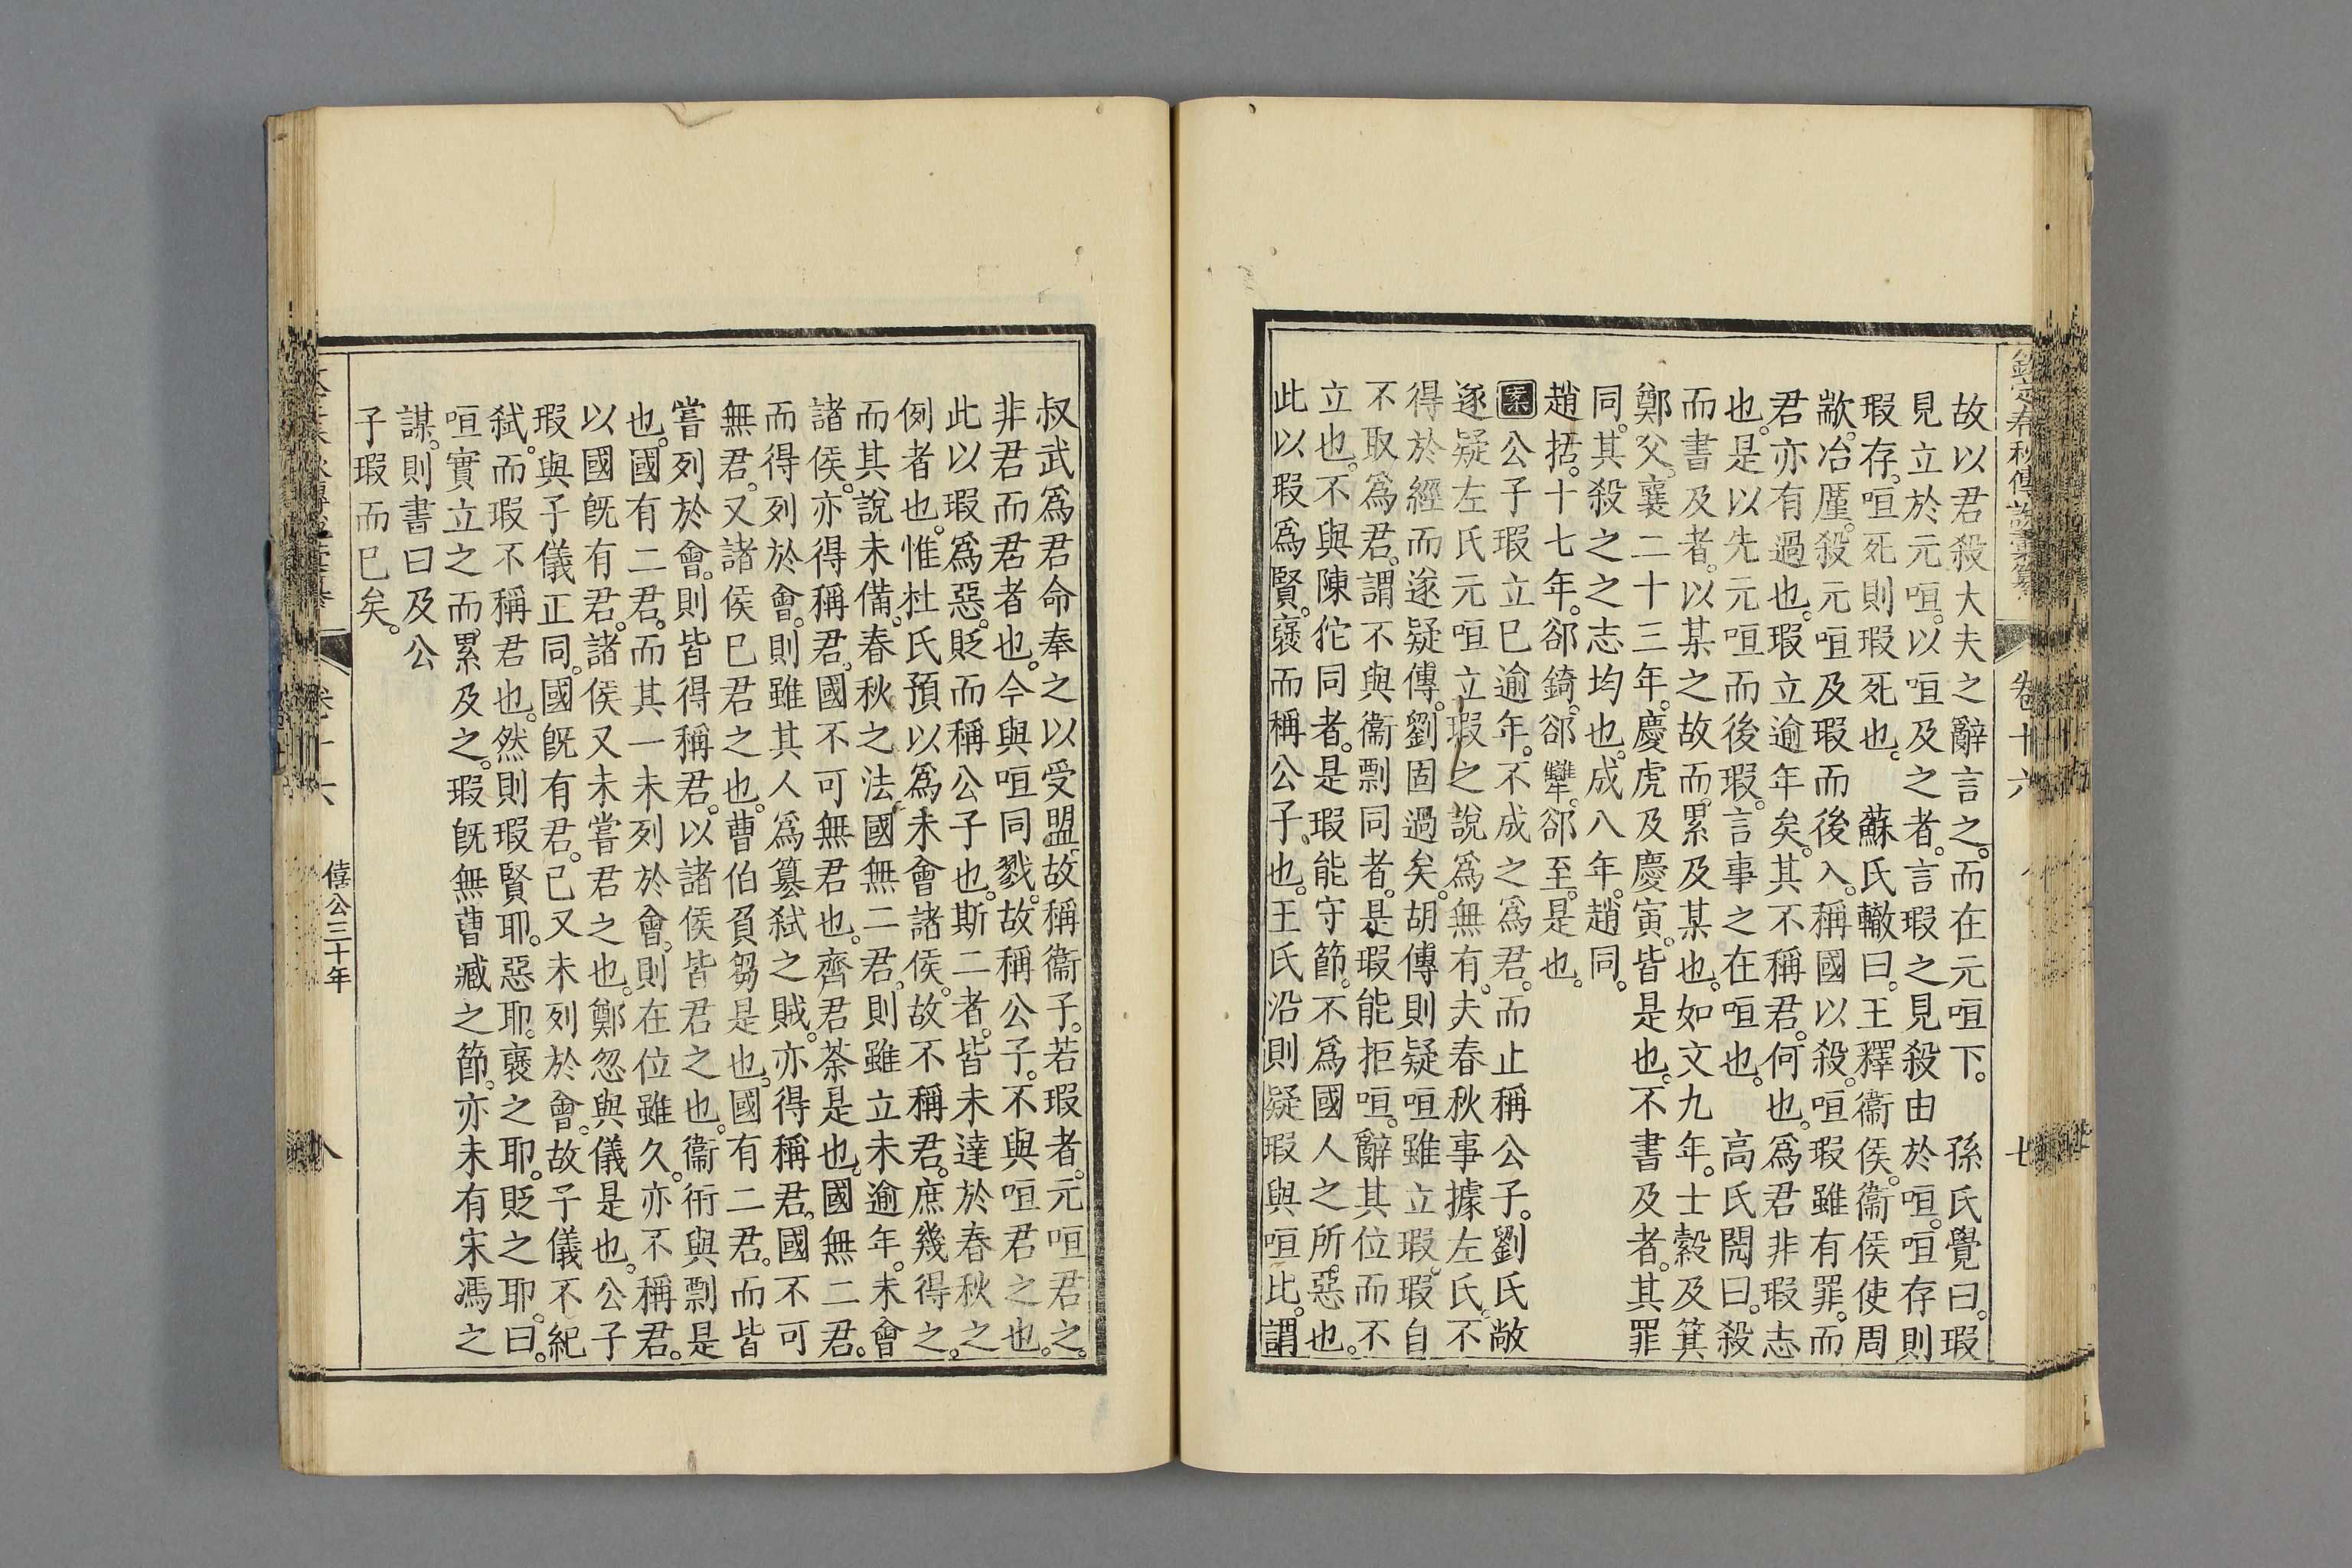 欽定春秋傳說彙纂 卷十六 七
故以君殺大夫之辭言之。而在元咺下。 孫氏覺曰。瑕
見立於元咺。以咺及之者。言瑕之見殺由於咺。咺存則
瑕存。咺死則瑕死也。 蘇氏轍曰。王釋衞侯。衞侯使周
歂。冶厪。殺元咺及瑕而後入。稱國以殺。咺瑕雖有罪。而
君亦有過也。瑕立逾年矣。其不稱君。何也。爲君非瑕志
也。是以先元咺而後瑕。言事之在咺也。 高氏閌曰。殺
而書及者。以某之故而。累及某也。如文九年。士縠及箕
鄭父。襄二十三年。慶虎及慶寅。皆是也。不書及者。其罪
同。其殺之之志均也。成八年。趙同。
趙括。十七年。郤錡。郤犨。郤至。是也。
案公子瑕立巳逾年。不成之爲君。而止稱公子。劉氏敞
遂疑左氏元咺立瑕之說爲無有。夫春秋事據左氏。不
得於經而遂疑傳。劉固過矣。胡傳則疑咺雖立瑕。瑕自
不取爲君。謂不與衞剽同者。是瑕能拒咺。辭其位而不
立也。不與陳佗同者。是瑕能守節。不爲國人之所惡也。
此以瑕爲賢。襃而稱公子也。王氏沿則疑瑕與咺比。謂
叔武爲君命奉之以受盟。故稱衞子。若瑕者。元咺君之。
非君而君者也。今與咺同戮。故稱公子。不與咺君之也。
此以瑕爲惡。貶而稱公子也。斯二者。皆未達於春秋之
例者也。惟杜氏預以爲未會諸侯。故不稱君。庶幾得之。
而其說未備。春秋之法。國無二君。則雖立未逾年。未會
諸侯。亦得稱君。國不可無君也。齊君荼是也。國無二君。
而得列於會。則雖其人爲簒弑之賊。亦得稱君。國不可
無君。又諸侯巳君之也。曹伯負芻是也。國有二君。而皆
嘗列於會。則皆得稱君。以諸侯皆君之也。衞衎與剽是
也。國有二君。而其一未列於會。則在位雖久。亦不稱君。
以國旣有君。諸侯又未嘗君之也。鄭忽與儀是也。公子
瑕與子儀正同。國旣有君。己又未列於會。故子儀不紀
弑。而瑕不稱君也。然則瑕賢耶。惡耶。襃之耶。貶之耶。曰。
咺實立之而。累及之。瑕旣無曹臧之節。亦未有宋馮之
謀。則書曰及公
子瑕而巳矣。
卷十六 僖公三十年 八